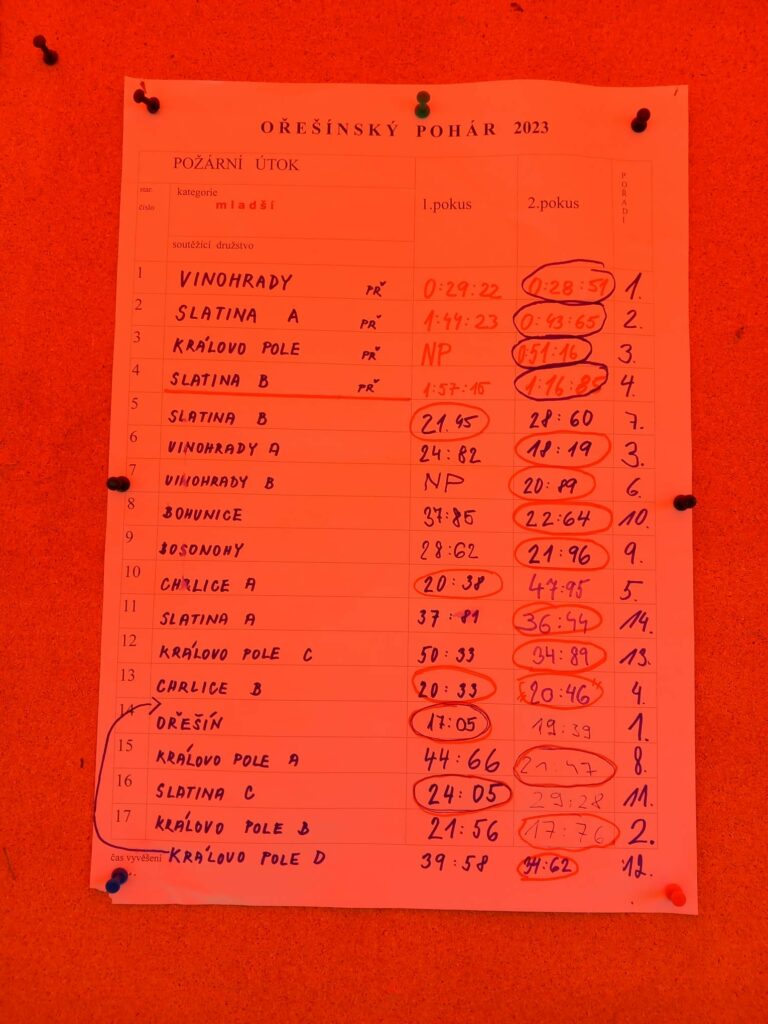 OŘEŠÍNSKÝ POHÁR 2023
POŽÁRNÍ ÚTOK
star. číslo kategorie mladší 1.pokus 2.pokus POŘADÍ
soutěžící družstvo
1 VINOHRADY PŘ 0:29:22 0:28:51 1.
2 SLATINA A PŘ 1:44:23 0:43:65 2.
3 KRÁLOVO POLE PŘ NP 0:51:16 3.
4 SLATINA B PŘ 1:57:15 1:16:85 4.
5 SLATINA B 21.45 28:60 7.
6 VINOHRADY A 24:82 18:19 3.
7 VINOHRADY B NP 20:89 6.
8 BOHUNICE 37:85 22:64 10.
9 BOSONOHY 28:62 21:96 9.
10 CHRLICE A 20:38 47:95 5.
11 SLATINA A 37:81 36:44 14.
12 KRÁLOVO POLE C 50:33 34:89 13.
13 CHRLICE B 20:33 "20:46" 4.
14 OŘEŠÍN 17:05 19:39 1.
15 KRÁLOVO POLE A 44:66 21:47 8.
16 SLATINA C 24:05 29:28 11.
17 KRÁLOVO POLE B 21:56 17:76 2.
čas vyvěšení KRÁLOVO POLE D 39:58 34:62 12.